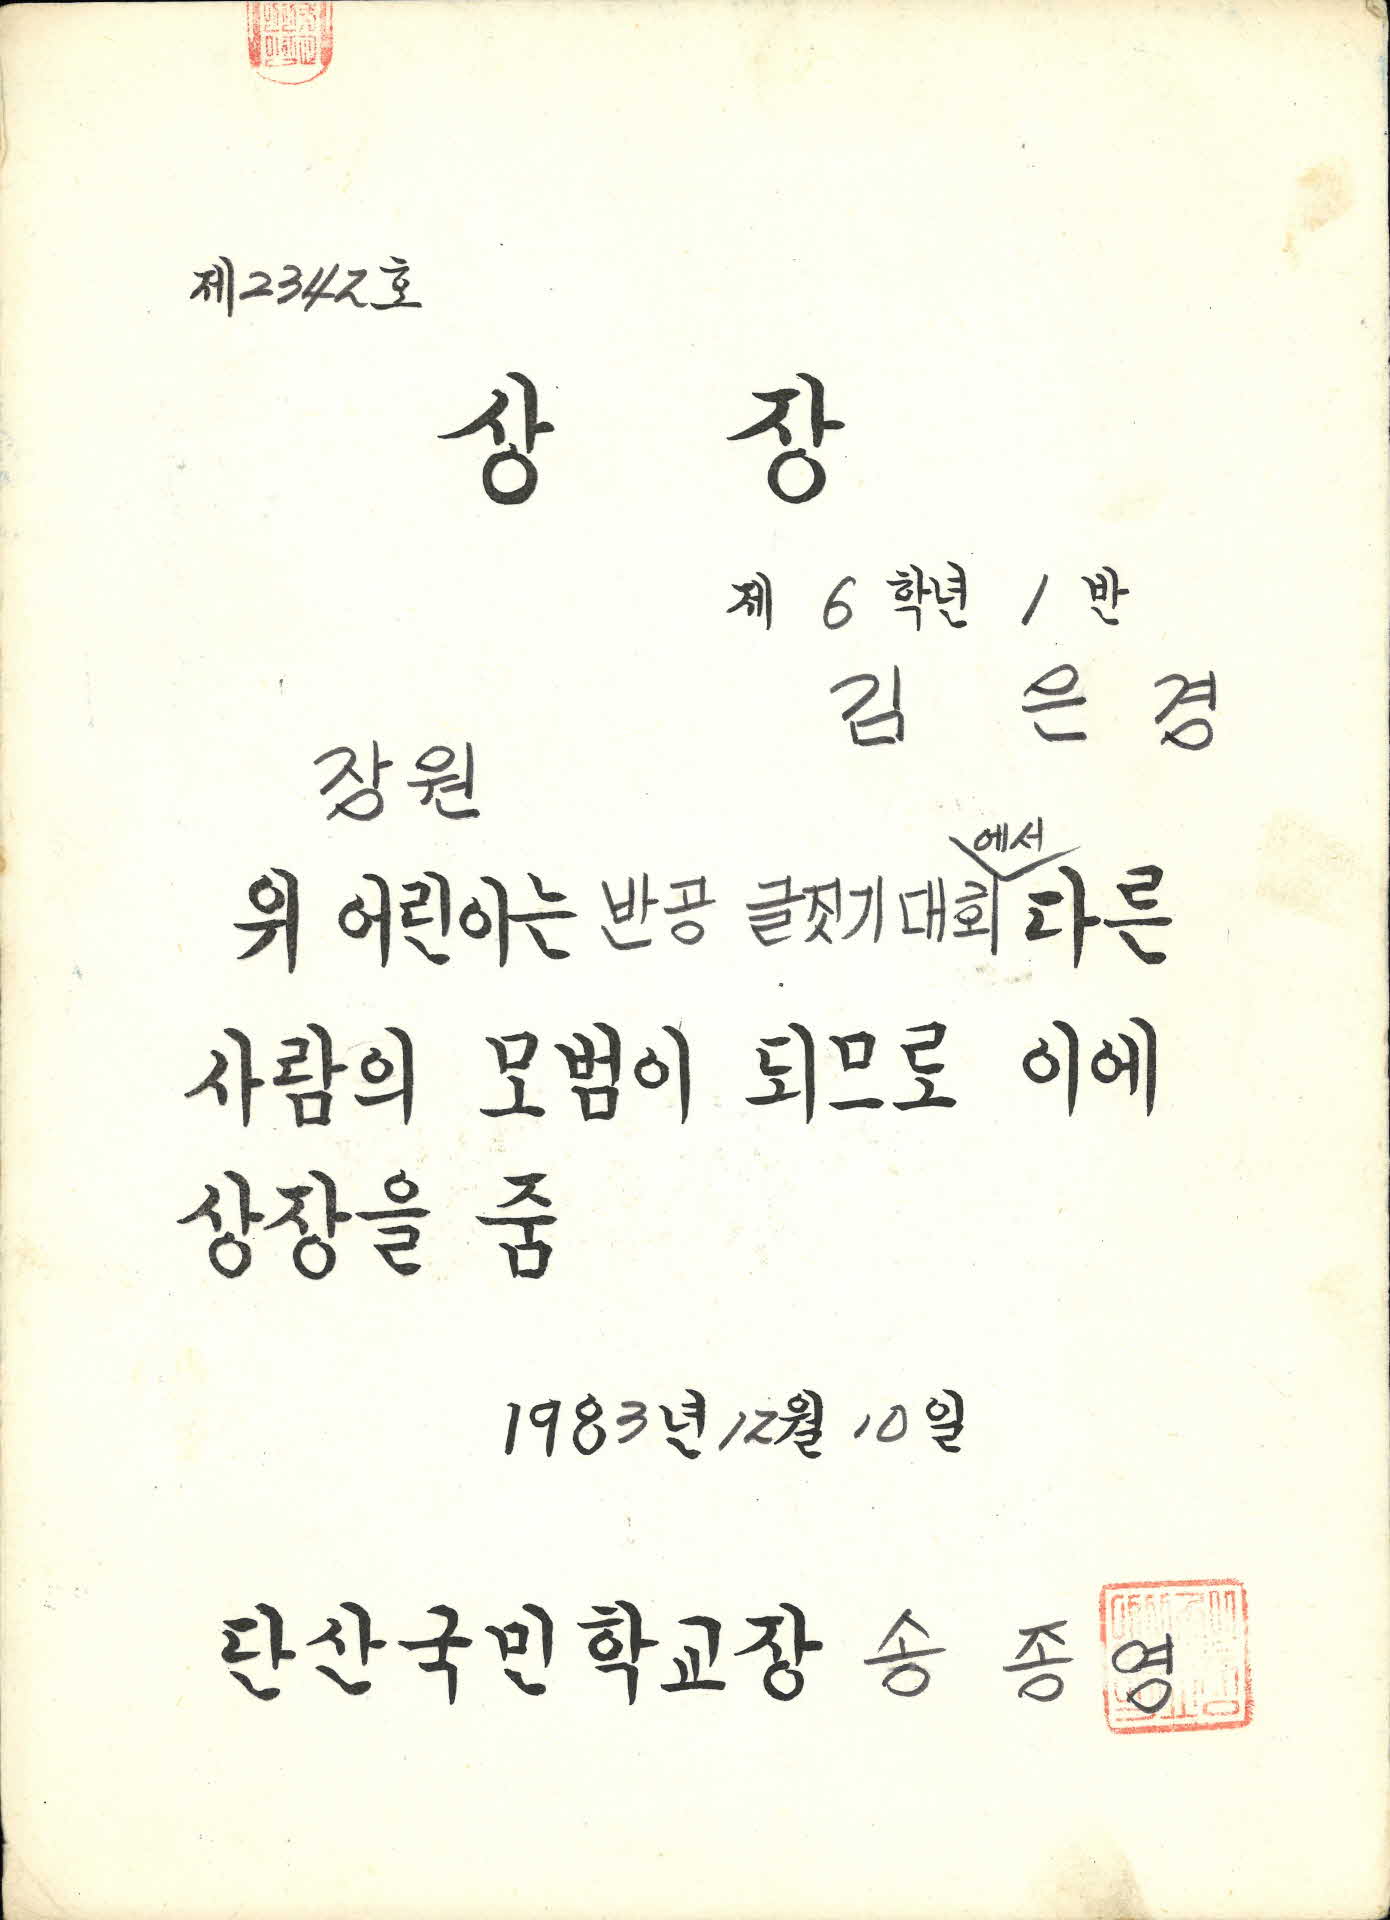 제2342호
상 장
제 6 학년 1 반
김 은 경
장원
에서
위 어린이는 반공 글짓기대회 다른
사람의 모범이 되므로 이에
상장을 줌
1983년 12월 10일
단산국민학교장 송 종 영